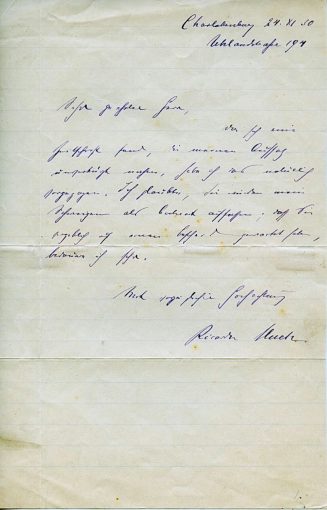 Charlottenburg 24. XI. 30
Uhlandstraße 194
Sehr geehrter Herr,
da sich eine
Zeitschrift fand, die meinen Aufsatz
habe ich es natürlich
vorgezogen. Ich glaubte, Sie würden mein
Schweigen als auffassen; daß Sie
vergeblich auf einen Bescheid gewartet haben,
bedaure ich sehr.
Mit vorzüglicher Hochachtung
Ricarda Huch